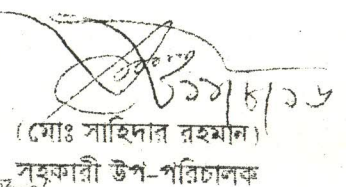 ১১/৮/১৬
(মোঃ সাহিদার রহমান)
সহকারী উপ-পরিচালক